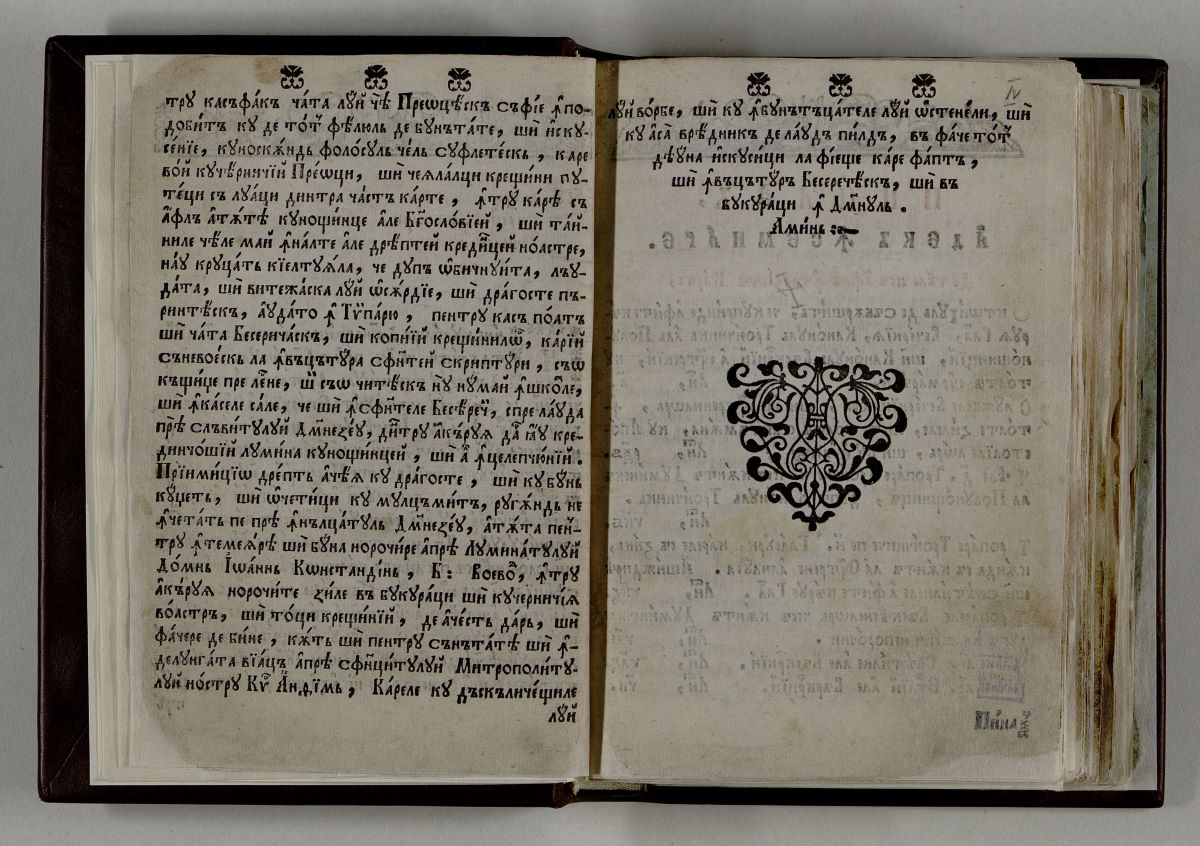 тру касъфакъ чата луй чѣ Преѡцѣскъ съфіе ꙟпо-
добитъ ку де тотꙋ фѣлюль де бунътате, ши иску-
сеніе, куноскѫндь фолосуль чель суфлетескь, каре
вой кучерничій Преѡци, ши чеялалци крещини пу-
теци съ луаци динтра частъ карте, ꙟтру карѣ съ
афлъ атѫтѣ кунощинце але Бг͠ословіей, ши тай-
ниле чѣле май ꙟналте але дрѣптей крединцей ноастре,
нау круцать кіелтуяла, че дупъ ѡбичнуита, лъу-
дата, ши витежаска луй ѡсѫрдіе, ши драгосте пъ-
ринтѣскъ, аудато ꙟ Тѵпарю, пентру касъ поатъ
ши чата Бесеричаскъ, ши копіій крещинилѡр, карій
съневоескь ла ꙟвъцътура сфинтей скриптури, съѡ
къщице пре лѣне, ши съѡ читѣскъ ну нумай ꙟшколе,
ши ꙟкаселе сале, че ши ꙟсфинтеле Бесѣречй, спре лауда
прѣ слъвитулуй Дм͠неꙁеу, динтру акъруя дарꙋ ꙗу кре-
динчошій лумина кунощинцей, ши а ꙟцелепчюній.
Прїимициѡ дрептъ ачѣя ку драгосте, ши ку бунь
куцеть, ши ѡчетици ку мулцъмитъ, ругѫндь не
ꙟчетать пе прѣ ꙟнълцатуль Дм͠неꙁеу, атѫта пен-
тру ꙟтемеѧре ши буна норочире апрѣ Луминатулуй
Домнь Іѡаннь Кѡнстандінь, Б: Воевод, ꙟтру
акъруя норочите ꙁиле въ букураци ши кучерничія
воастръ, ши тоци крещиній, де ачесть дарь, ши
фачере де бине, кѫть ши пентру сънътате ши ꙟ-
делунгата віацъ апрѣ сфинцитулуй Митрополиту-
луй ностру Кѵр Анѳімь, Кареле ку дъскъличещиле
луй
IV
луй ворбе, ши ку ꙟбунътъцателе луй ѡстенели, ши
ку аса врѣдникъ де лаудъ пилдъ, въ фаче тотꙋ
дѣуна искусици ла фіеще каре фаптъ,
ши ꙟвъцътуръ Бесеречѣскъ, ши въ
букураци ꙟ Дм͠нуль.
Аминь